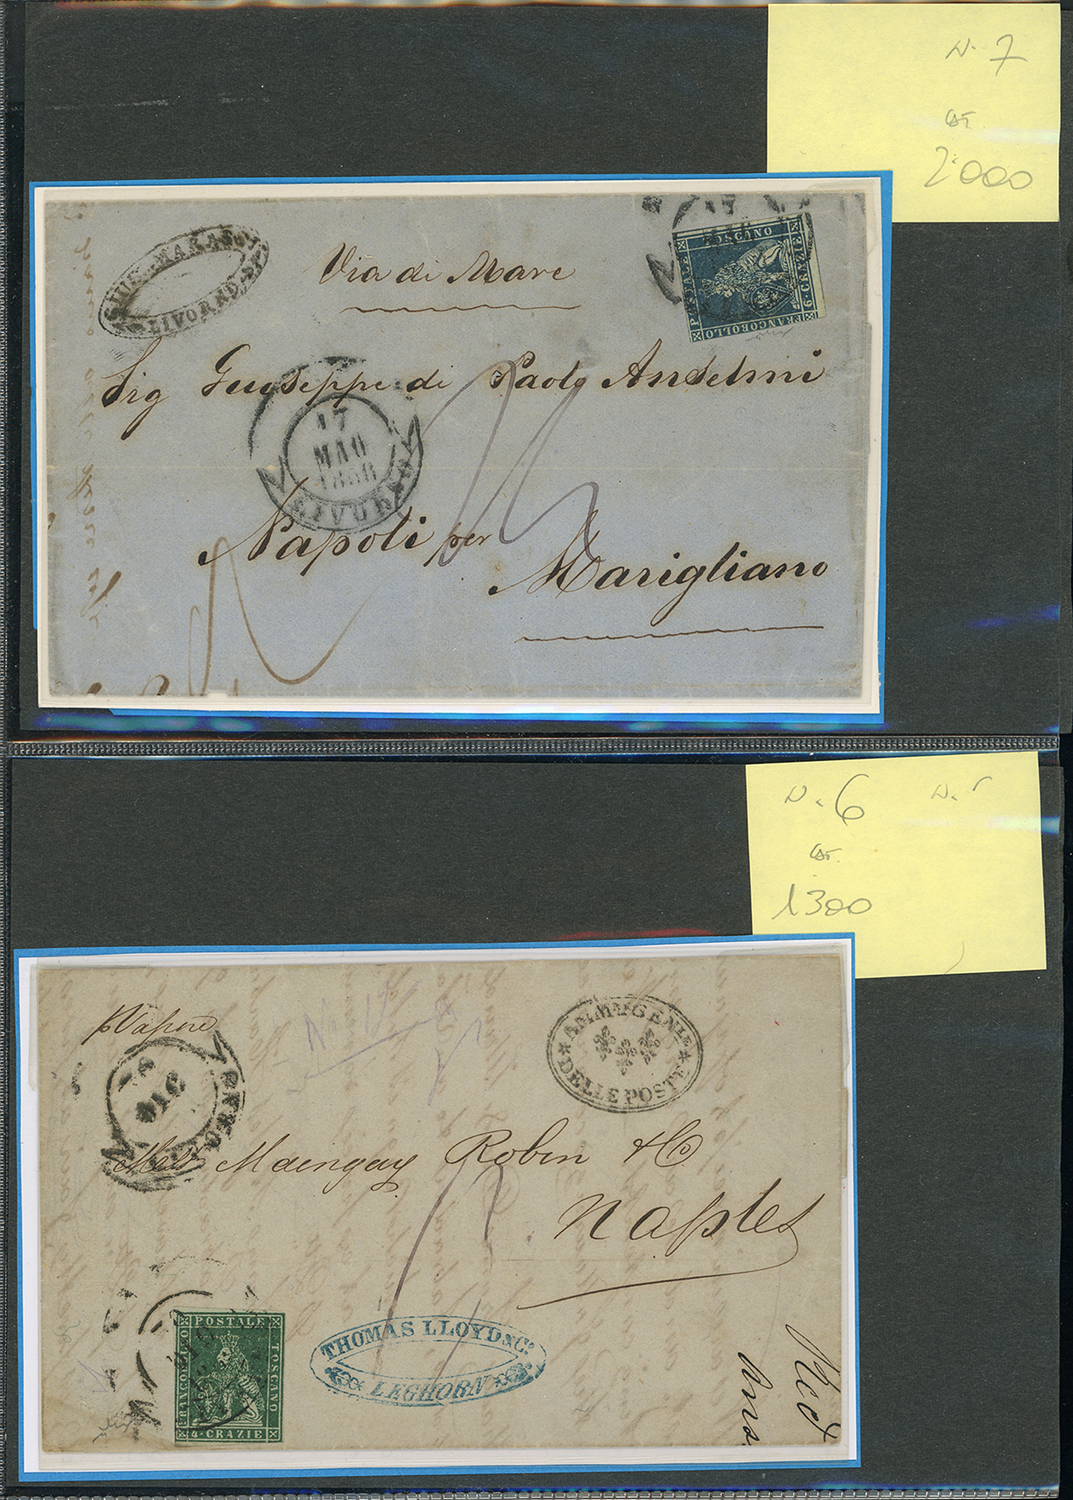 N. 7
CAT.
2.000
LIVORNO
Via di Mare
FRANCOBOLLO POSTALE TOSCANO 6 CRAZIE
Sig Giuseppe di Paolo Anselmi
17
MAG
1858
LIVORNO
Napoli per
Marigliano
N. 6
CAT.
1300
pVapore
AMM GEN
DELLE POSTE
DIC
Maingay Robin & Co
Naples
FRANCOBOLLO POSTALE TOSCANO
4 CRAZIE
THOMAS LLOYD & Co
LEGHORN